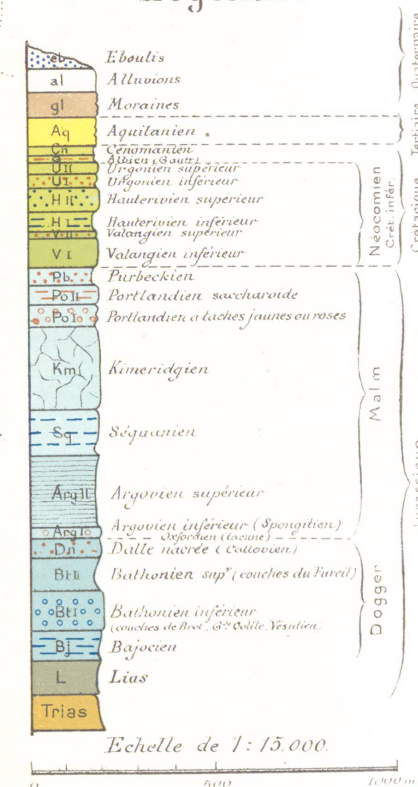 eb Eboulis
al Alluvions
gl Moraines
Aq Aquitanien
Cn Cénomanien
Albien (Gault)
U II Urgonien supérieur
U I Urgonien inférieur
H II Hauterivien supérieur
H I Hauterivien inférieur
V II Valangien supérieur
V I Valangien inférieur
Pb. Purbeckien
Po II Portlandien saccharoïde
Po I Portlandien à taches jaunes ou roses
Km Kimeridgien
Sq Séquanien
Arg II Argovien supérieur
Arg I Argovien inférieur (Spongitien)
Oxfordien (lacune)
Dn Dalle nacrée (Callovien)
Bt II Bathonien supr (couches du Furcil)
Bt I Bathonien inférieur
(couches de Brot, Gde Oolite, Vésulien)
Bj Bajocien
L Lias
Trias
Quaternaire
Tertiaire
Néocomien
Crét. infér.
Crétacique
Malm
Dogger
Echelle de 1:15.000.
0 500 1000 m